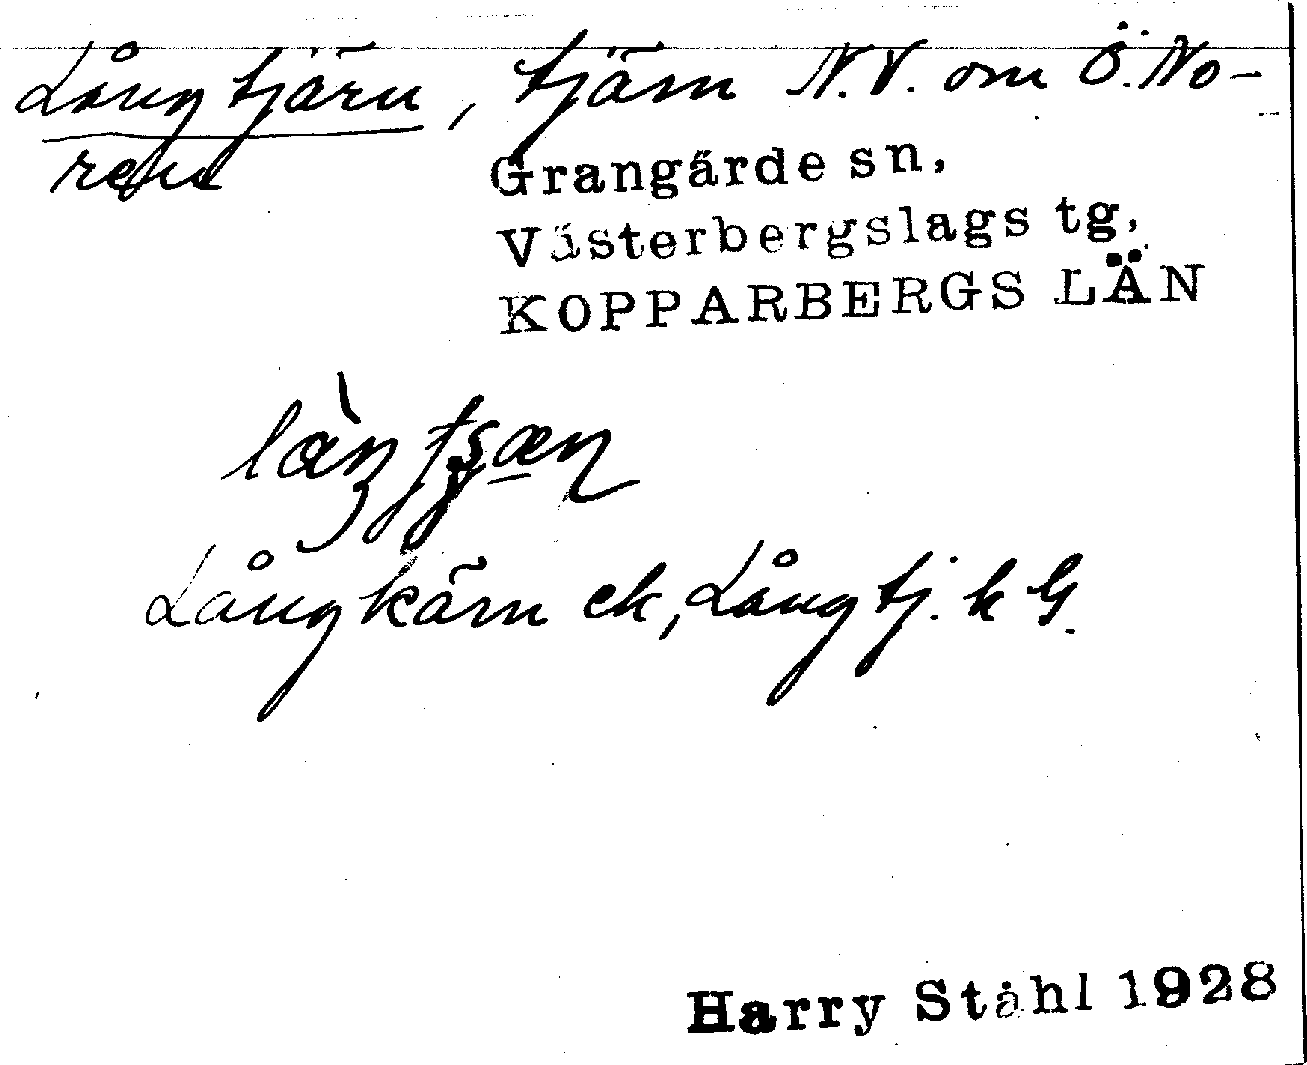 Långtjärn, tjärn N.V. om Ö. No-
rens
Grangärde sn,
Västerbergslags tg,
KOPPARBERGS LÄN
Långkärn ek, Långtj. k G.
Harry Ståhl 1928